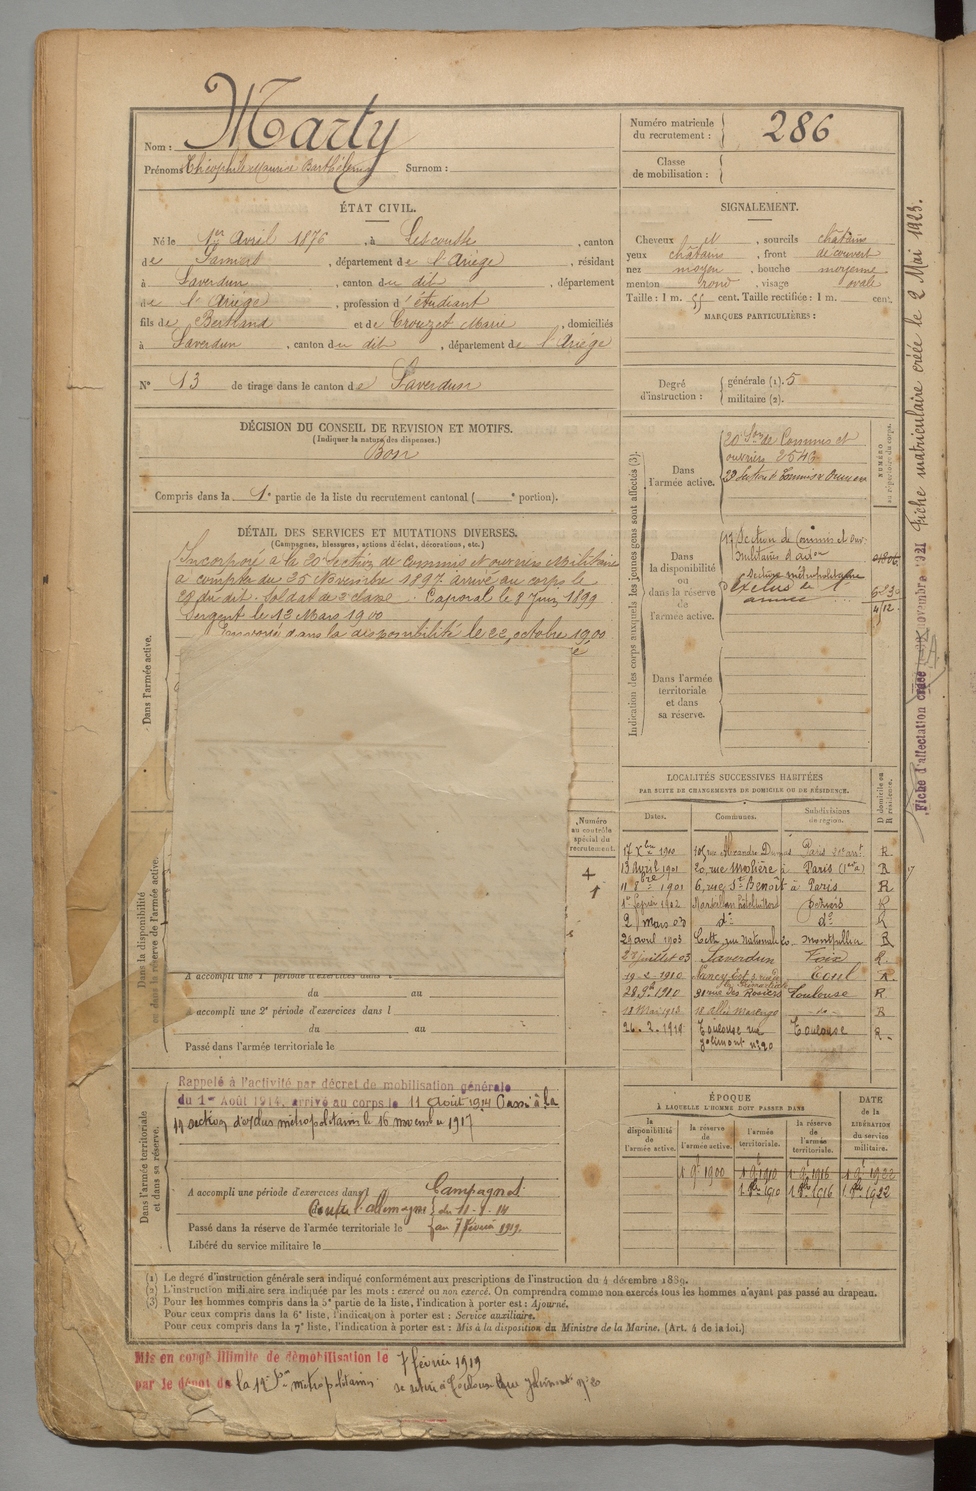 Nom : Marty
Prénoms Théophile Maurice Barthélemy Surnom :
Numéro matricule du recrutement : 286
Classe de mobilisation :
ÉTAT CIVIL.
Né le 1er Avril 1876, à Lescousse, canton
de Pamiers, département de l'Ariège, résidant
à Saverdun, canton du dit, département
de l'Ariège, profession d'étudiant
fils de Bertrand et de Crouzet Marie, domiciliés
à Saverdun, canton du dit, département de l'Ariège
N° 13 de tirage dans le canton de Saverdun
SIGNALEMENT.
Cheveux et, sourcils châtains
yeux châtains, front découvert
nez moyen, bouche moyenne
menton rond, visage ovale
Taille : 1 m. 55 cent. Taille rectifiée : 1 m. cent.
MARQUES PARTICULIÈRES :
Degré d'instruction : générale (1). 5
militaire (2).
DÉCISION DU CONSEIL DE REVISION ET MOTIFS.
(Indiquer la nature des dispenses.)
Bon
Compris dans la 1e partie de la liste du recrutement cantonal ( e portion).
DÉTAIL DES SERVICES ET MUTATIONS DIVERSES.
(Campagnes, blessures, actions d'éclat, décorations, etc.)
Dans l'armée active.
Incorporé à la 20e Section de commis et ouvriers Militaires
à compter du 25 Novembre 1897 arrivé au corps le
et du dit. Soldat de 2e classe. Caporal le 8 Juin 1899
Sergent le 13 Mars 1900
dans la disponibilité le 22 octobre 1900
Dans la disponibilité ou dans la réserve de l'armée active.
A accompli une 1e période d'exercices dans l
du au
A accompli une 2e période d'exercices dans l
du au
Passé dans l'armée territoriale le
Numéro au contrôle spécial du recrutement.
Dans l'armée territoriale et dans sa réserve.
Rappelé à l'activité par décret de mobilisation générale
du 1er Août 1914, arrivé au corps le 11 Août 1914 Passé à la
section d'exclus métropolitains le 16 novembre 1917
A accompli une période d'exercices dans l Campagnes
Contre l'Allemagne du 11-8-14
Passé dans la réserve de l'armée territoriale le au 7 février 1919.
Libéré du service militaire le
Indication des corps auxquels les jeunes gens sont affectés (3).
NUMÉRO au répertoire du corps.
Dans l'armée active.
20e Son de Commis et
ouvriers 2543
Dans la disponibilité ou dans la réserve de l'armée active.
17 Section de Commis et ouv.
militaires d'adon
Section métropolitaine
exclus de l'
armée
Dans l'armée territoriale et dans sa réserve.
LOCALITÉS SUCCESSIVES HABITÉES
PAR SUITE DE CHANGEMENTS DE DOMICILE OU DE RÉSIDENCE.
Dates. Communes. Subdivisions de région. D domicile ou R résidence.
17 Xbre 1900 rue Alexandre Dumas Paris R.
13 avril 1901 20, rue Molière à Paris R
1901 6, rue St Benoît à Paris R
1902 Béziers R
2 mars 03 do do R
29 avril 1903 Cette, rue Nationale 20 Montpellier R
27 juillet 03 Saverdun Foix R.
19-2-1910 Nancy Toul R.
1910 31 rue des Rosiers Toulouse R
18 Mai 1913 18 allée Marengo do R
26.2.1919 Toulouse rue Jolimont n° 20 Toulouse R.
ÉPOQUE
À LAQUELLE L'HOMME DOIT PASSER DANS
la disponibilité de l'armée active. la réserve de l'armée active. l'armée territoriale. la réserve de l'armée territoriale. DATE de la LIBÉRATION du service militaire.
1900 1910 1916 1922
1910 1916 1922
(1) Le degré d'instruction générale sera indiqué conformément aux prescriptions de l'instruction du 4 décembre 1889.
(2) L'instruction militaire sera indiquée par les mots : exercé ou non exercé. On comprendra comme non exercés tous les hommes n'ayant pas passé au drapeau.
(3) Pour les hommes compris dans la 5e partie de la liste, l'indication à porter est : Ajourné.
Pour ceux compris dans la 6e liste, l'indication à porter est : Service auxiliaire.
Pour ceux compris dans la 7e liste, l'indication à porter est : Mis à la disposition du Ministre de la Marine. (Art. 4 de la loi.)
Mis en congé illimité de démobilisation le 7 février 1919
par le dépôt de la métropolitains se retire à Toulouse rue Jolimont n° 20
Fiche matriculaire créée le 2 Mai 1923.
Fiche d'affectation créée novembre 1921